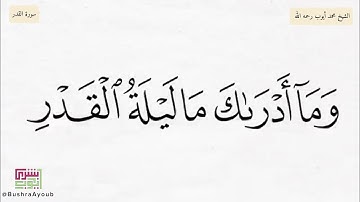 سورة القدر
الشيخ محمد أيوب رحمه الله
وَمَآ أَدْرَىٰكَ مَا لَيْلَةُ ٱلْقَدْرِ
بشرى
أيوب
@BushraAyoub